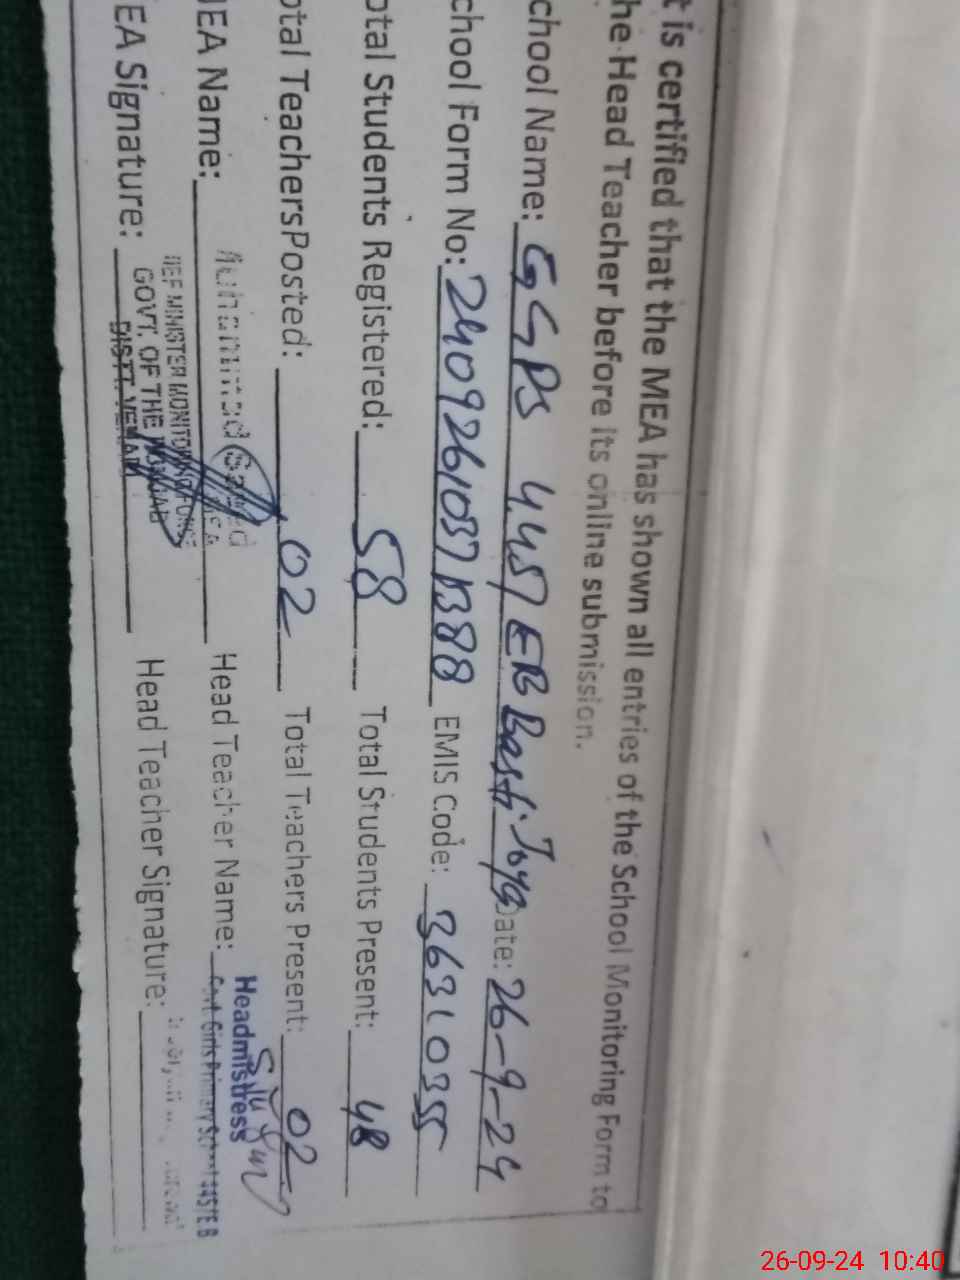 t is certified that the MEA has shown all entries of the School Monitoring Form to
he Head Teacher before its online submission.
chool Name: GGPS 445/EB Basti Joya Date: 26-9-24
chool Form No: 24092610371388 EMIS Code: 36310355
otal Students Registered: 58 Total Students Present: 48
otal Teachers Posted: 02 Total Teachers Present: 02
EA Name: Muhammad Saeed Head Teacher Name:
Headmistress
Govt. Girls Primary School 445/EB
IEF MINISTER MONITORING FORCE
GOVT. OF THE PUNJAB
DISTT. VEHARI
EA Signature: Head Teacher Signature:
26-09-24 10:40